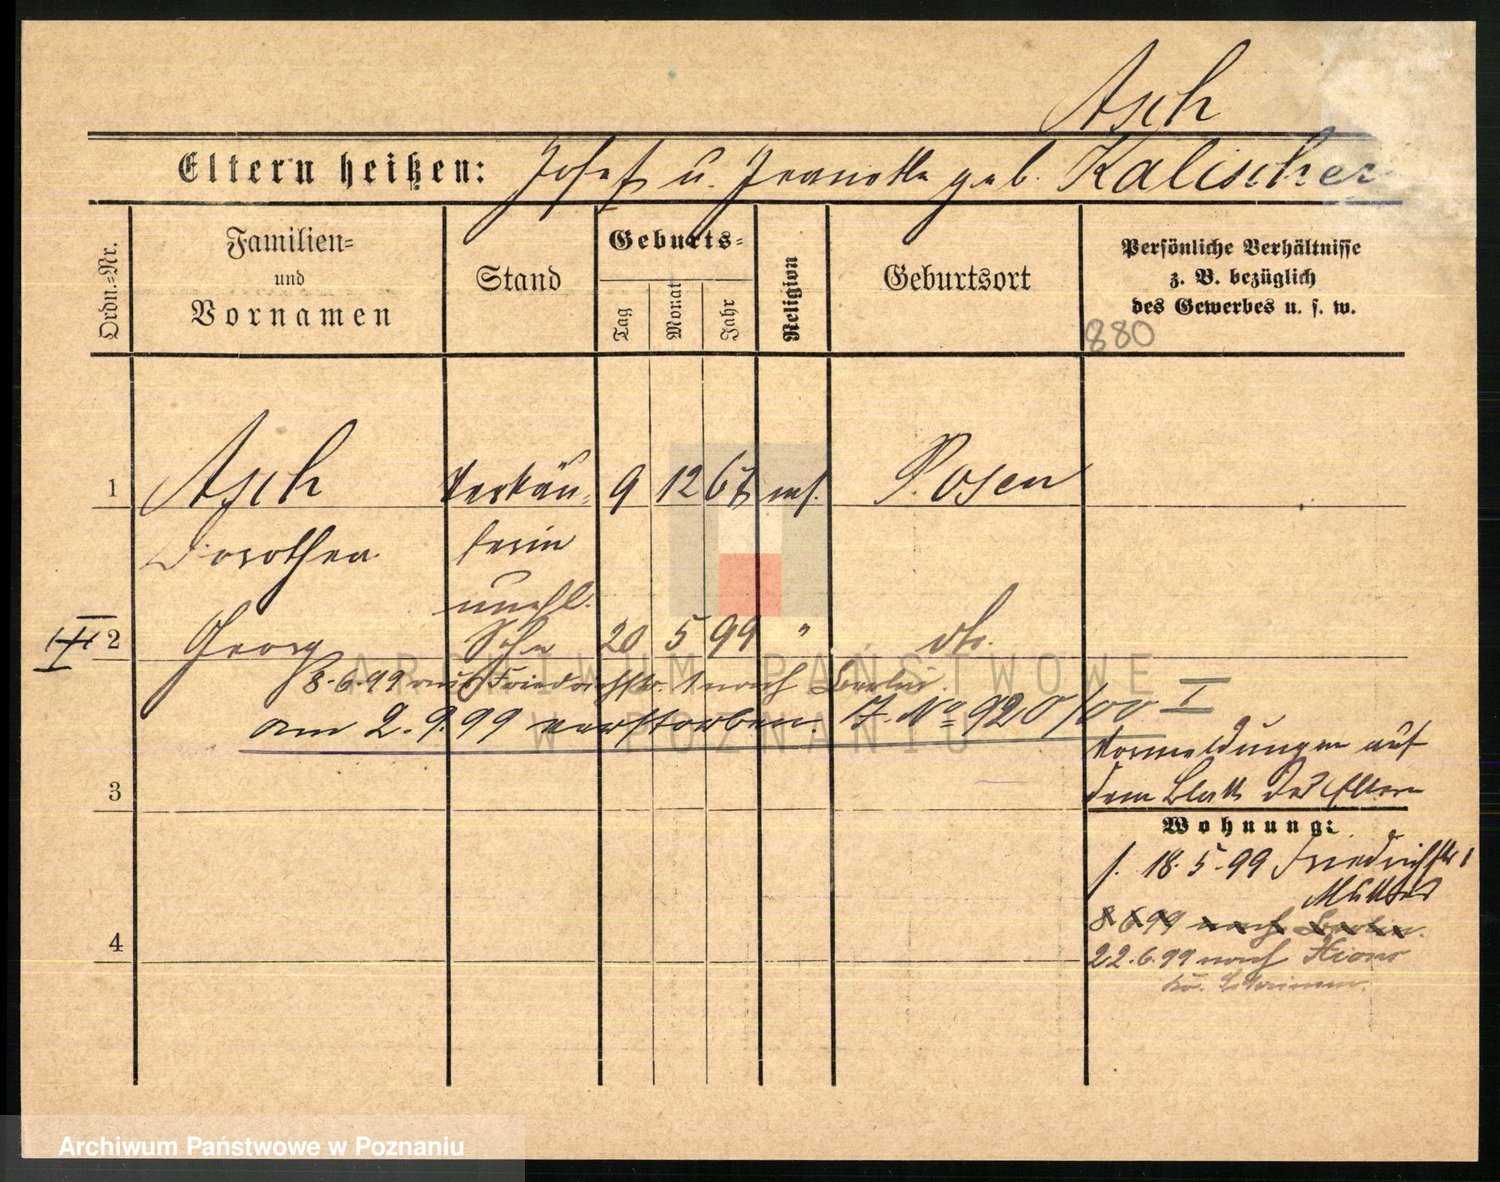 Asch
Eltern heißen: Josef u. Jeanette geb. Kalischer
Ordn.=Nr.
Familien=
und
Vornamen
Stand
Geburts=
Tag
Monat
Jahr
Religion
Geburtsort
Persönliche Verhältnisse
z. B. bezüglich
des Gewerbes u. s. w.
880
1 Asch Verkäu= 9 12 67 ms. Posen
Dorothea ferin
unehl.
III 2 Georg Sohn 20 5 99 " do.
8.6.99 aus Friedrichstr. 1 nach Berlin.
am 2.9.99 verstorben. J. No 920/00 I
Vormeldungen auf
dem Blatt der Eltern
3
Wohnung:
f. 18.5.99 Friedrichstr 1
Mutter
8 6 99 nach Berlin.
22.6.99 nach
4
ARCHIWUM PAŃSTWOWE
W POZNANIU
Archiwum Państwowe w Poznaniu